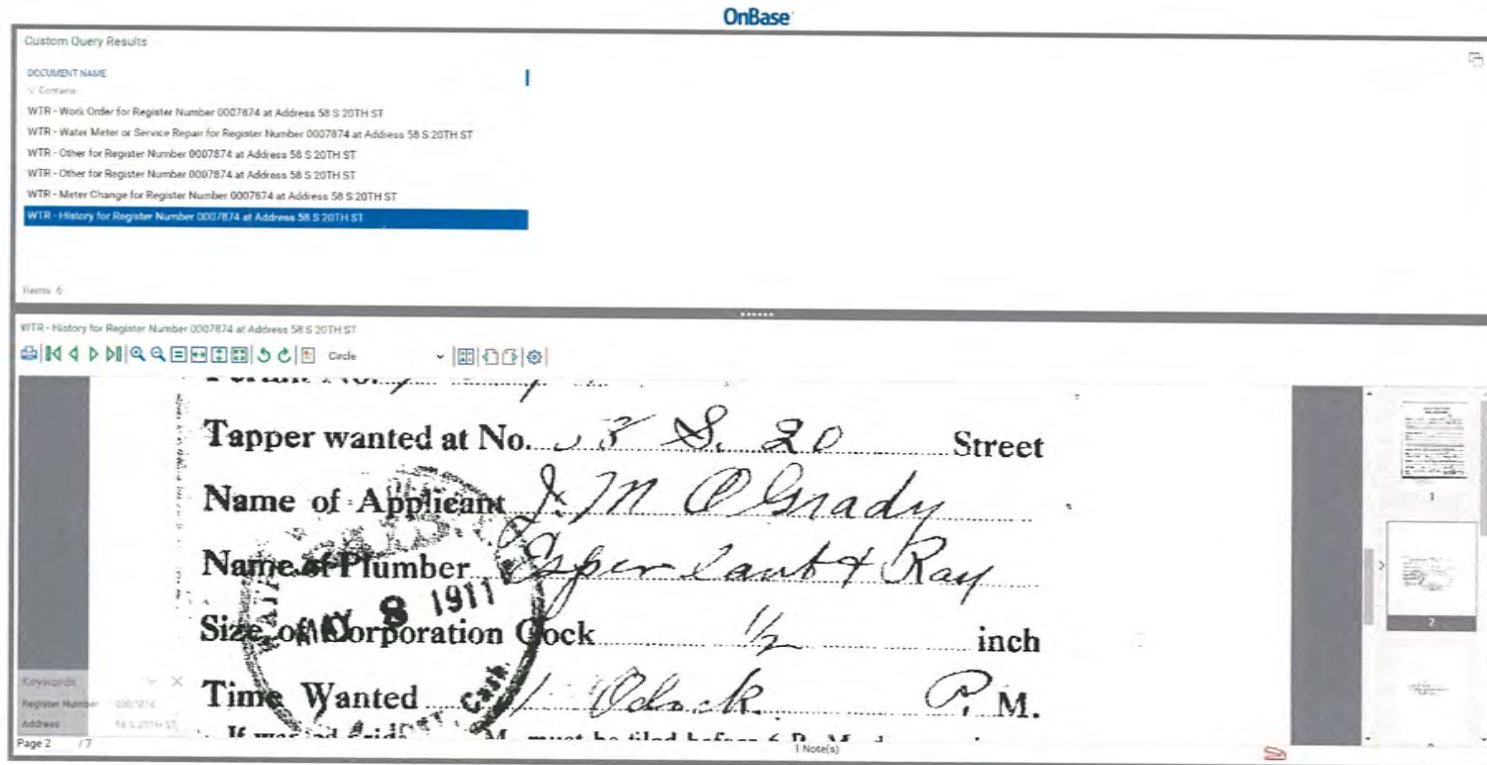 OnBase
Custom Query Results
DOCUMENT NAME
Contains
WTR - Work Order for Register Number 0007874 at Address 58 S 20TH ST
WTR - Water Meter or Service Repair for Register Number 0007874 at Address 58 S 20TH ST
WTR - Other for Register Number 0007874 at Address 58 S 20TH ST
WTR - Other for Register Number 0007874 at Address 58 S 20TH ST
WTR - Meter Change for Register Number 0007874 at Address 58 S 20TH ST
WTR - History for Register Number 0007874 at Address 58 S 20TH ST
Items 6
WTR - History for Register Number 0007874 at Address 58 S 20TH ST
Circle
Tapper wanted at No. 58 S. 20 Street
Name of Applicant J. M O Grady
Name of Plumber & Ray
MAY 8 1911
Size of Corporation Cock 1/2 inch
Time Wanted 1 Oclock P. M.
Keywords
Register Number 0007874
Address 58 S 20TH ST
Page 2 / 7
1 Note(s)
1
2